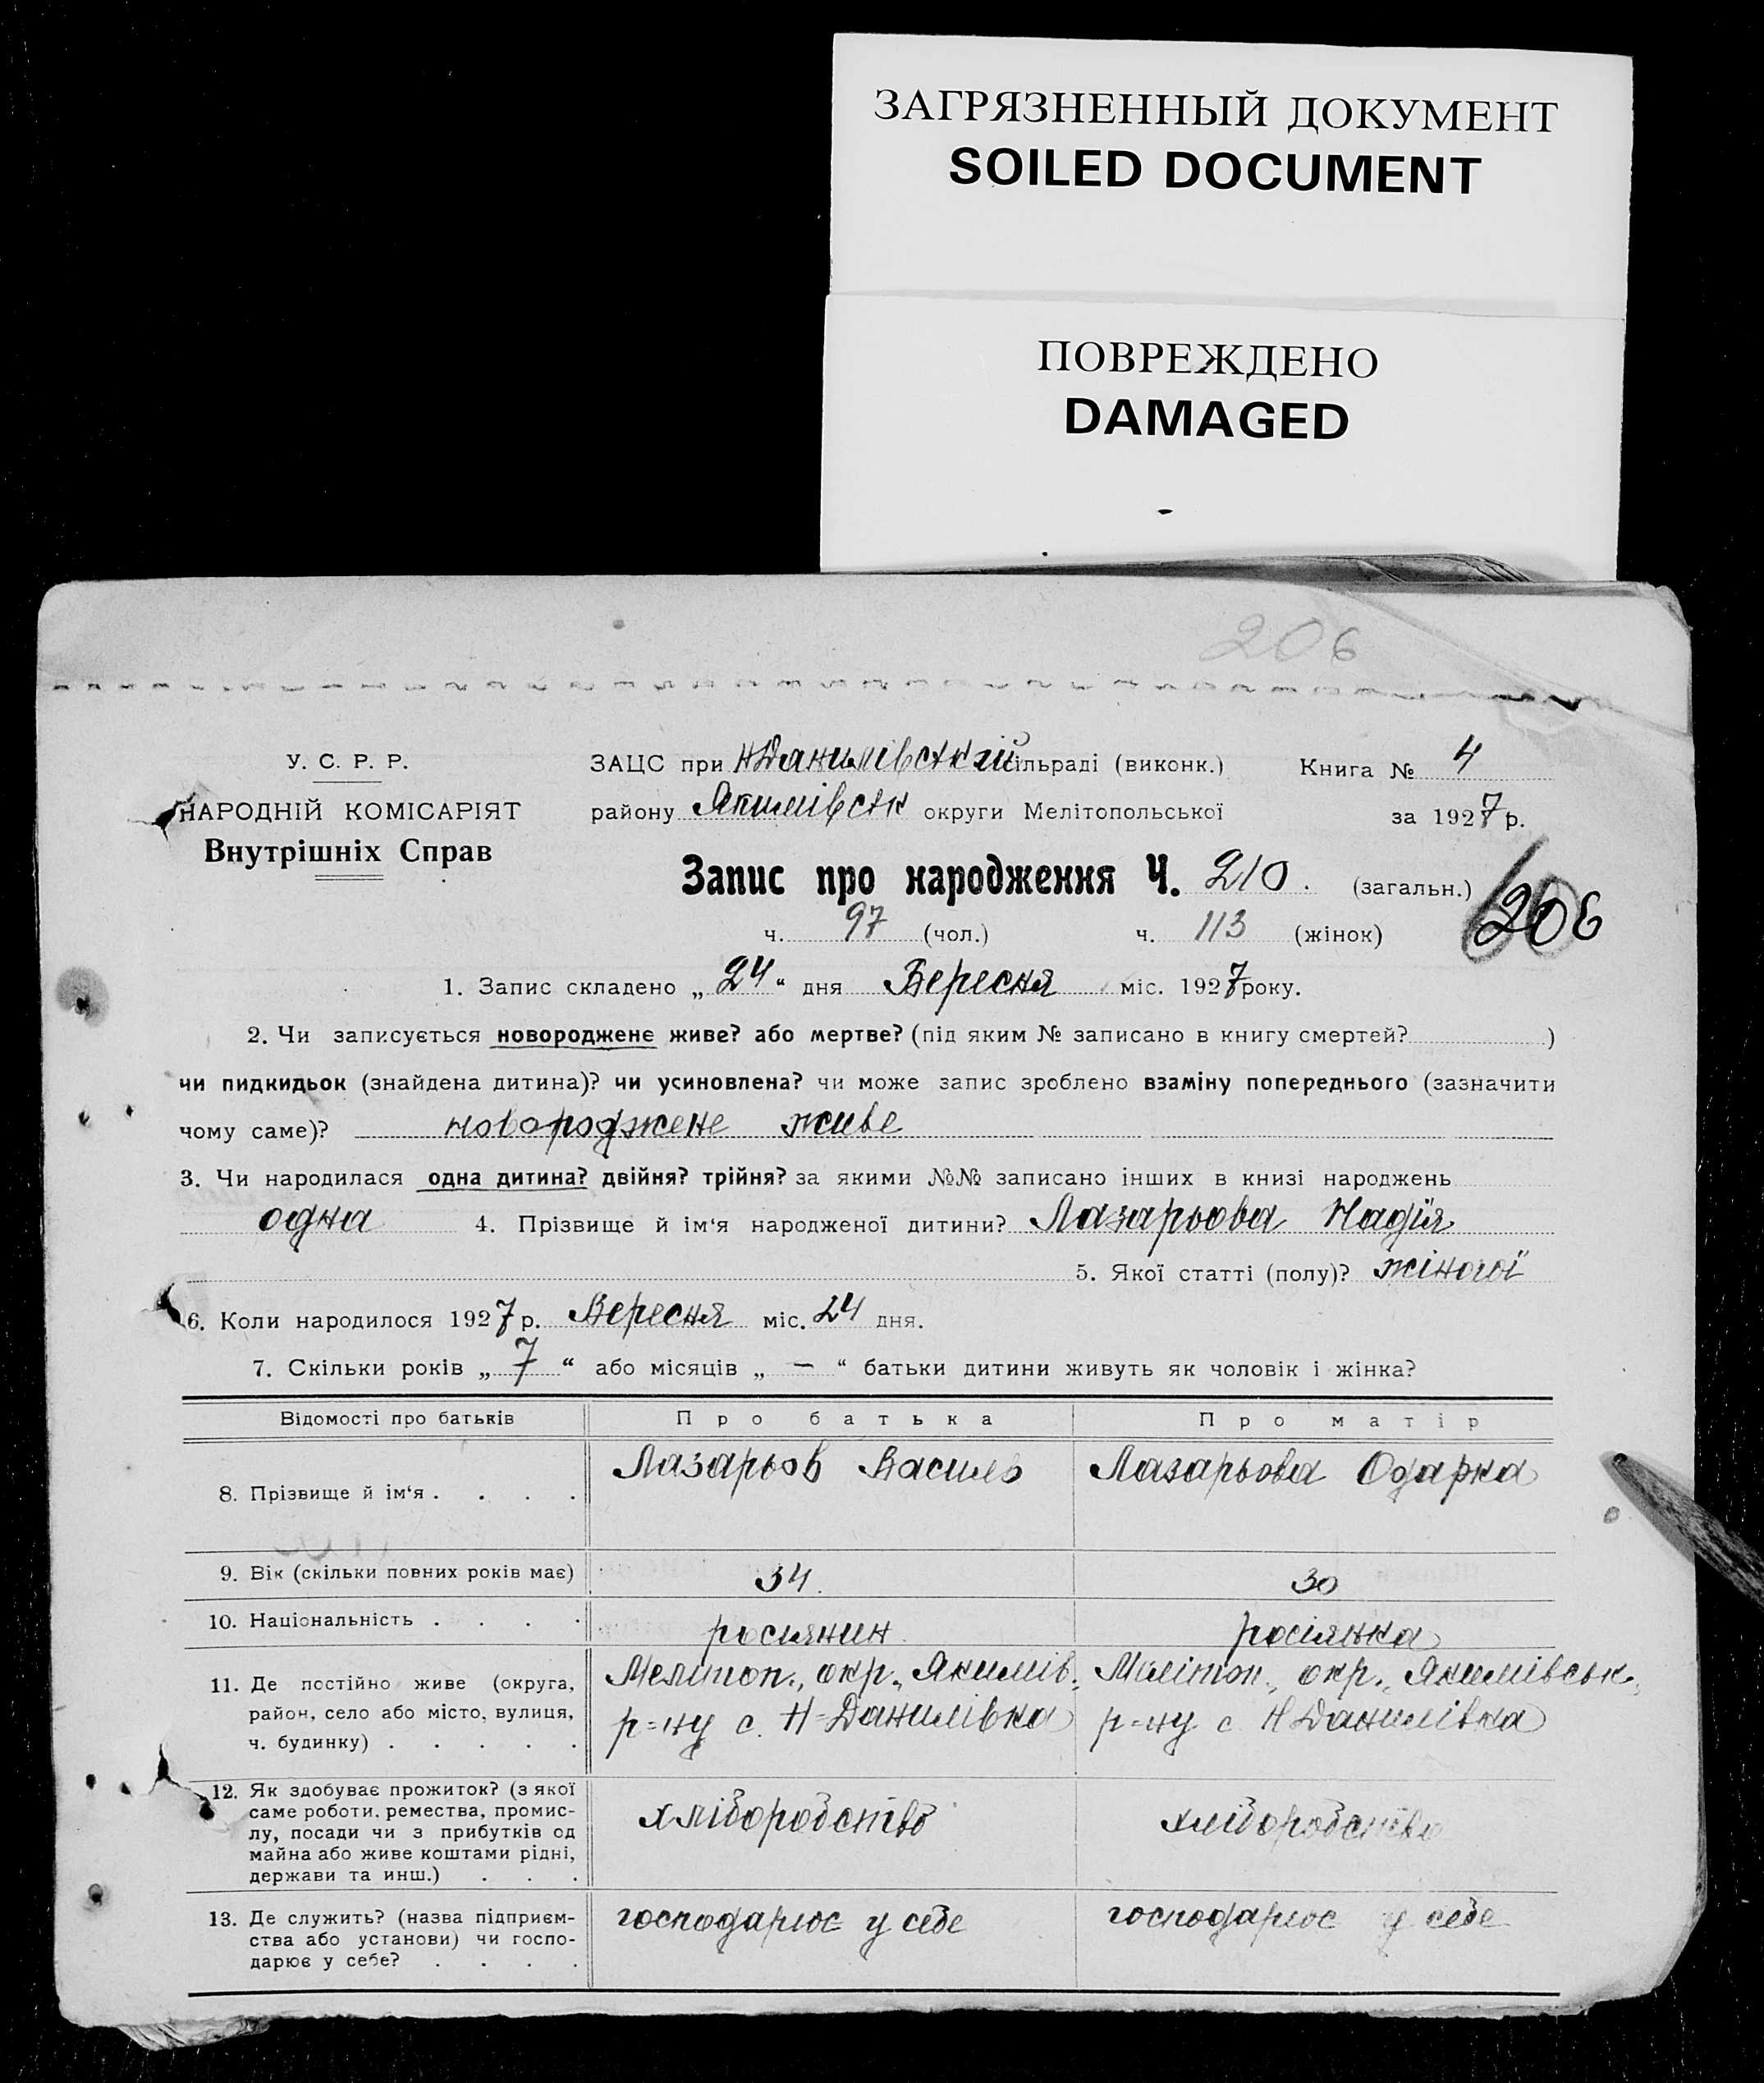 ЗАГРЯЗНЕННЫЙ ДОКУМЕНТ
SOILED DOCUMENT
ПОВРЕЖДЕНО
DAMAGED
206
У. С. Р. Р.
НАРОДНІЙ КОМІСАРІЯТ
Внутрішніх Справ
ЗАЦС при НДанилівській сільраді (виконк.) Книга № 4
району Якимівськ округи Мелітопольської за 1927 р.
Запис про народження Ч. 210. (загальн.) 206
ч. 97 (чол.) ч. 113 (жінок)
1. Запис складено „ 24 “ дня Вересня міс. 1927 року.
2. Чи записується новороджене живе? або мертве? (під яким № записано в книгу смертей? )
чи пидкидьок (знайдена дитина)? чи усиновлена? чи може запис зроблено взаміну попереднього (зазначити
чому саме)? новороджене живе
3. Чи народилася одна дитина? двійня? трійня? за якими №№ записано інших в книзі народжень
одна 4. Прізвище й ім‘я народженої дитини? Лазарьова Надія
5. Якої статті (полу)? жіночої
6. Коли народилося 1927 р. Вересня міс. 24 дня.
7. Скільки років „ 7 “ або місяців „ — “ батьки дитини живуть як чоловік і жінка?
Відомості про батьків Про батька Про матір
8. Прізвище й ім‘я . . . . Лазарьов Василь Лазарьова Одарка
9. Вік (скільки повних років має) 34. 30
10. Національність . . . . росиянин росіянка
11. Де постійно живе (округа, Мелитоп., окр., Якимів. Мелітоп., окр., Якимівськ.
район, село або місто, вулиця, р=ну с. Н=Данилівка р=ну с НДанилівка
ч. будинку) . . . . .
12. Як здобуває прожиток? (з якої
саме роботи, ремества, промис- хліборобство хліборобство
лу, посади чи з прибутків од
майна або живе коштами рідні,
держави та инш.) . . .
13. Де служить? (назва підприєм- господарює у себе господарює у себе
ства або установи) чи госпо-
дарює у себе? . . . .